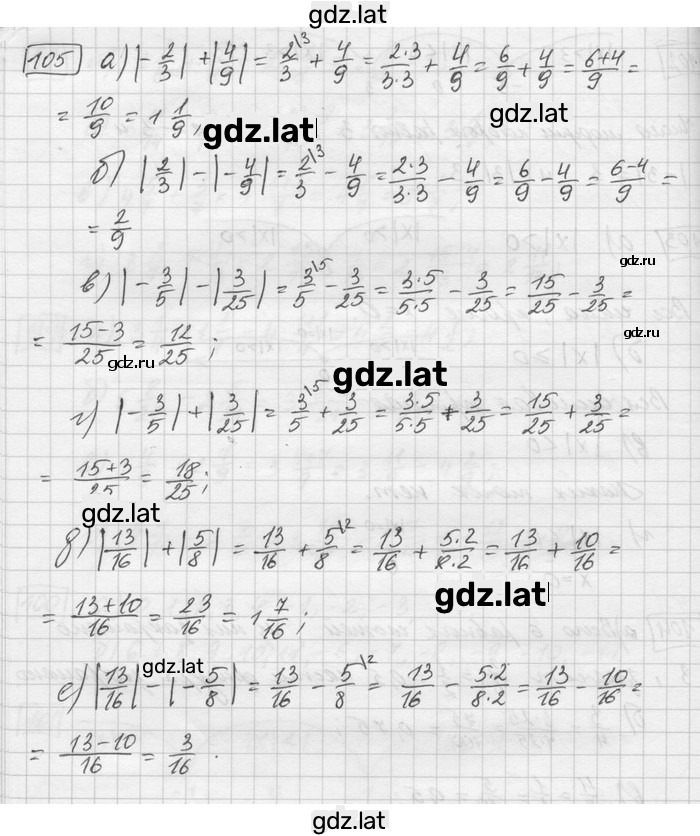 gdz.lat
105 а) |-2/3| + |4/9| = 2/3\3 + 4/9 = 2·3/3·3 + 4/9 = 6/9 + 4/9 = 6+4/9 =
gdz.lat
= 10/9 = 1 1/9,
gdz.lat
б) |2/3| - |-4/9| = 2/3\3 - 4/9 = 2·3/3·3 - 4/9 = 6/9 - 4/9 = 6-4/9 =
= 2/9
gdz.ru
в) |-3/5| - |3/25| = 3/5\5 - 3/25 = 3·5/5·5 - 3/25 = 15/25 - 3/25 =
= 15-3/25 = 12/25;
gdz.ru
gdz.lat
г) |-3/5| + |3/25| = 3/5\5 + 3/25 = 3·5/5·5 + 3/25 = 15/25 + 3/25 =
= 15+3/25 = 18/25;
gdz.lat
д) |13/16| + |5/8| = 13/16 + 5/8\2 = 13/16 + 5·2/8·2 = 13/16 + 10/16 =
gdz.lat
= 13+10/16 = 23/16 = 1 7/16;
gdz.lat
е) |13/16| - |-5/8| = 13/16 - 5/8\2 = 13/16 - 5·2/8·2 = 13/16 - 10/16 =
= 13-10/16 = 3/16.
gdz.lat